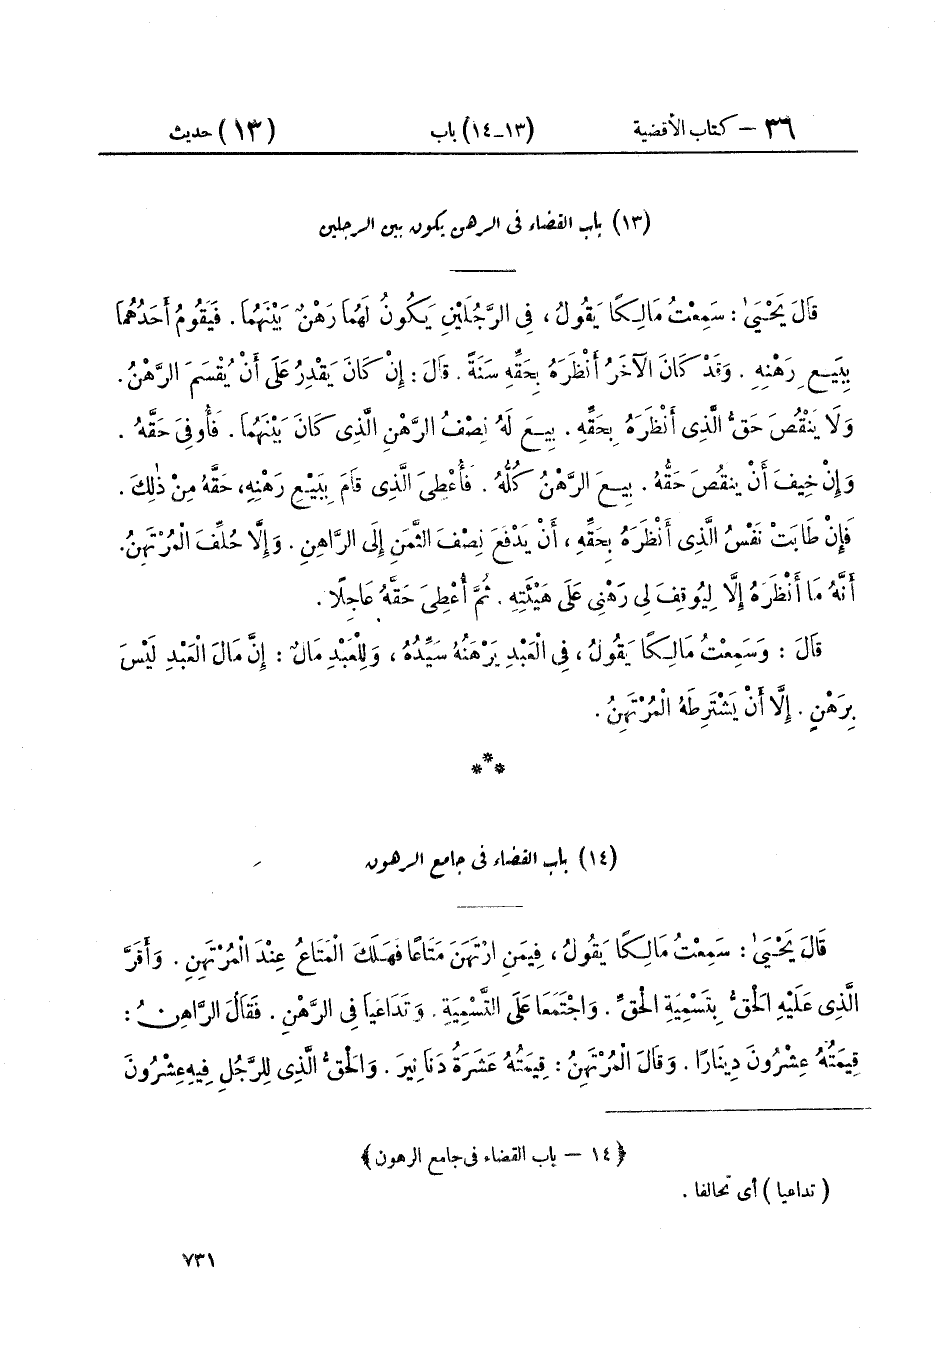 ٣٦ – كتاب الأقضية (١٣-١٤) باب (١٣) حديث
(١٣) باب القضاء فى الرهن يكون بين الرجلين
قَالَ يَحْيَىٰ : سَمِعْتُ مَالِكًا يَقُولُ ، فِى الرَّجُلَيْنِ يَكُونُ لَهُمَا رَهْنٌ بَيْنَهُمَا . فَيَقُومُ أَحَدُهُمَا
بِبَيْعِ رَهْنِهِ . وَقَدْ كَانَ الْآخَرُ أَنْظَرَهُ بِحَقِّهِ سَنَةً . قَالَ : إِنْ كَانَ يَقْدِرُ عَلَى أَنْ يُقْسَمَ الرَّهْنُ .
وَلَا يَنْقُصَ حَقُّ الَّذِى أَنْظَرَهُ بِحَقِّهِ . بِيعَ لَهُ نِصْفُ الرَّهْنِ الَّذِى كَانَ بَيْنَهُمَا . فَأُوفِىَ حَقَّهُ .
وَإِنْ خِيفَ أَنْ يَنْقُصَ حَقُّهُ . بِيعَ الرَّهْنُ كُلُّهُ . فَأُعْطِىَ الَّذِى قَامَ بِبَيْعِ رَهْنِهِ، حَقَّهُ مِنْ ذٰلِكَ .
فَإِنْ طَابَتْ نَفْسُ الَّذِى أَنْظَرَهُ بِحَقِّهِ ، أَنْ يَدْفَعَ نِصْفَ الثَّمَنِ إِلَى الرَّاهِنِ . وَإِلَّا حُلِّفَ الْمُرْتَهِنُ.
أَنَّهُ مَا أَنْظَرَهُ إِلَّا لِيُوقِفَ لِى رَهْنِى عَلَى هَيْئَتِهِ . ثُمَّ أُعْطِىَ حَقَّهُ عَاجِلًا .
قَالَ : وَسَمِعْتُ مَالِكًا يَقُولُ ، فِى الْعَبْدِ يَرْهَنُهُ سَيِّدُهُ ، وَلِلْعَبْدِ مَالٌ : إِنَّ مَالَ الْعَبْدِ لَيْسَ
بِرَهْنٍ . إِلَّا أَنْ يَشْتَرِطَهُ الْمُرْتَهِنُ .
***
(١٤) باب القضاء فى جامع الرهون
قَالَ يَحْيَىٰ : سَمِعْتُ مَالِكًا يَقُولُ ، فِيمَنِ ارْتَهَنَ مَتَاعًا فَهَلَكَ الْمَتَاعُ عِنْدَ الْمُرْتَهِنِ . وَأَقَرَّ
الَّذِى عَلَيْهِ الْحَقُّ بِتَسْمِيَةِ الْحَقِّ . وَاجْتَمَعَا عَلَى التَّسْمِيَةِ . وَتَدَاعَيَا فِى الرَّهْنِ . فَقَالَ الرَّاهِنُ :
قِيمَتُهُ عِشْرُونَ دِينَارًا . وَقَالَ الْمُرْتَهِنُ : قِيمَتُهُ عَشَرَةُ دَنَانِيرَ . وَالْحَقُّ الَّذِى لِلرَّجُلِ فِيهِ عِشْرُونَ
﴿١٤ – باب القضاء فى جامع الرهون﴾
(تداعيا) أى تحالفا .
٧٣١